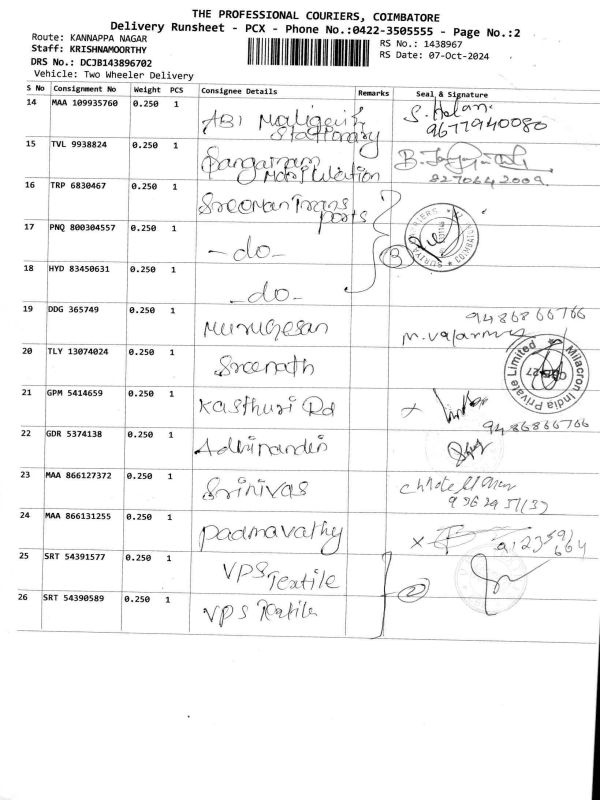 THE PROFESSIONAL COURIERS, COIMBATORE
Delivery Runsheet - PCX - Phone No.:0422-3505555 - Page No.:2
Route: KANNAPPA NAGAR RS No.: 1438967
Staff: KRISHNAMOORTHY RS Date: 07-Oct-2024
DRS No.: DCJB143896702
Vehicle: Two Wheeler Delivery
S No Consignment No Weight PCS Consignee Details Remarks Seal & Signature
14 MAA 109935760 0.250 1 ABI Stationary
9677940080
15 TVL 9938824 0.250 1
8270642009
16 TRP 6830467 0.250 1 Sreeman Transports
17 PNQ 800304557 0.250 1 -do- 3
18 HYD 83450631 0.250 1 -do-
19 DDG 365749 0.250 1 Murugesan 9486866766
20 TLY 13074024 0.250 1 Sreenath Milacron India Private Limited
21 GPM 5414659 0.250 1 Kasthuri Rd x
9486866766
22 GDR 5374138 0.250 1
23 MAA 866127372 0.250 1 Srinivas
24 MAA 866131255 0.250 1 Padmavathy x
25 SRT 54391577 0.250 1 VPS Textile 2
26 SRT 54390589 0.250 1 VPS Textile